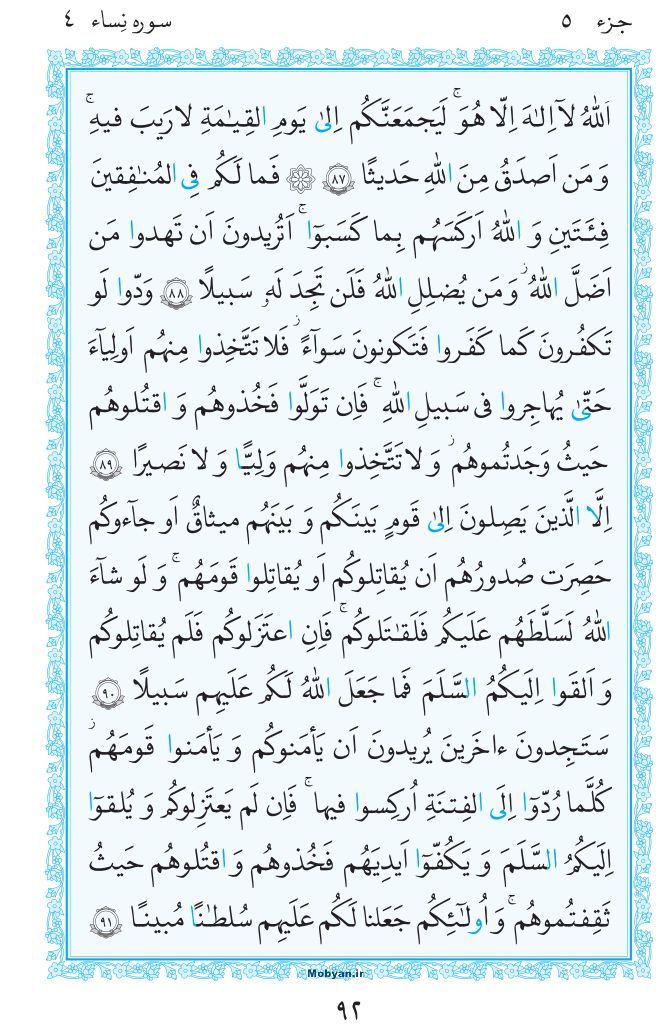 جزء ٥
سوره نِساء ٤
اَللّٰهُ لآ اِلٰهَ اِلّا هُوَ ۚ لَيَجمَعَنَّكُم اِلىٰ يَومِ القِيٰمَةِ لا رَيبَ فيهِ ۚ
وَ مَن اَصدَقُ مِنَ اللّٰهِ حَديثًا ﴿٨٧﴾ ۞ فَما لَكُم فِى المُنٰفِقينَ
فِئَتَينِ وَ اللّٰهُ اَركَسَهُم بِما كَسَبوٓا ۚ اَتُريدونَ اَن تَهدوا مَن
اَضَلَّ اللّٰهُ ۖ وَ مَن يُضلِلِ اللّٰهُ فَلَن تَجِدَ لَهٗ سَبيلًا ﴿٨٨﴾ وَدّوا لَو
تَكفُرونَ كَما كَفَروا فَتَكونونَ سَوآءً ۖ فَلا تَتَّخِذوا مِنهُم اَولِيآءَ
حَتّىٰ يُهاجِروا فى سَبيلِ اللّٰهِ ۚ فَاِن تَوَلَّوا فَخُذوهُم وَ اقتُلوهُم
حَيثُ وَجَدتُموهُم ۖ وَ لا تَتَّخِذوا مِنهُم وَلِيًّا وَ لا نَصيرًا ﴿٨٩﴾
اِلَّا الَّذينَ يَصِلونَ اِلىٰ قَومٍ بَينَكُم وَ بَينَهُم ميثاقٌ اَو جآءوكُم
حَصِرَت صُدورُهُم اَن يُقاتِلوكُم اَو يُقاتِلوا قَومَهُم ۚ وَ لَو شآءَ
اللّٰهُ لَسَلَّطَهُم عَلَيكُم فَلَقٰتَلوكُم ۚ فَاِنِ اعتَزَلوكُم فَلَم يُقاتِلوكُم
وَ اَلقَوا اِلَيكُمُ السَّلَمَ فَما جَعَلَ اللّٰهُ لَكُم عَلَيهِم سَبيلًا ﴿٩٠﴾
سَتَجِدونَ ءاخَرينَ يُريدونَ اَن يَأمَنوكُم وَ يَأمَنوا قَومَهُم ۖ
كُلَّما رُدّوٓا اِلَى الفِتنَةِ اُركِسوا فيها ۚ فَاِن لَم يَعتَزِلوكُم وَ يُلقوٓا
اِلَيكُمُ السَّلَمَ وَ يَكُفّوٓا اَيدِيَهُم فَخُذوهُم وَ اقتُلوهُم حَيثُ
ثَقِفتُموهُم ۚ وَ اُولٰئِكُم جَعَلنا لَكُم عَلَيهِم سُلطٰنًا مُبينًا ﴿٩١﴾
Mobyan.ir
٩٢